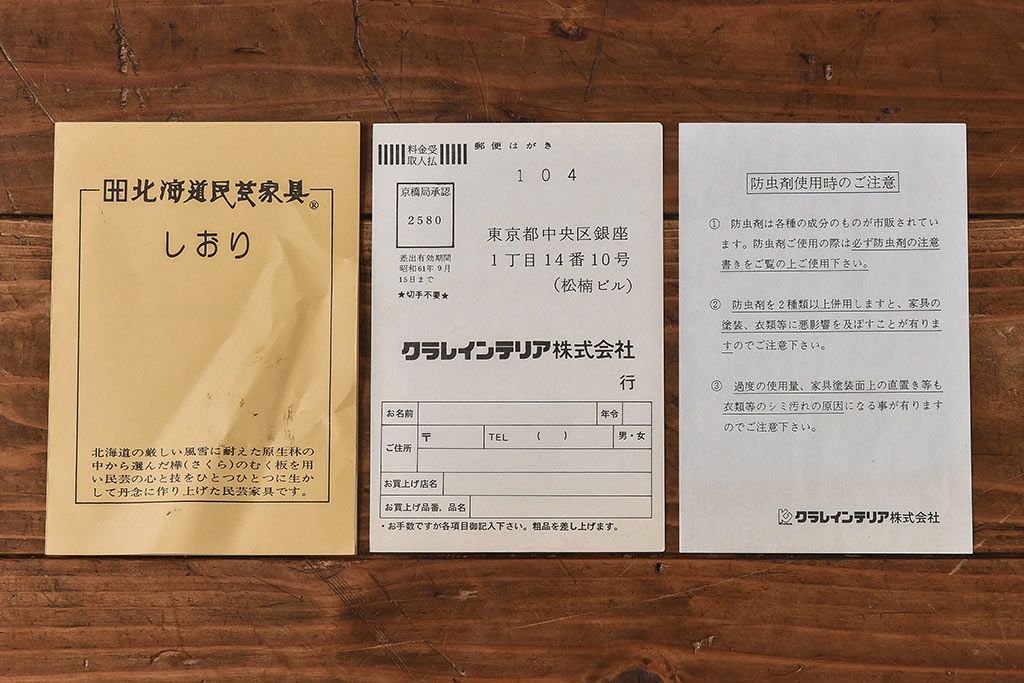 北海道民芸家具®
しおり
北海道の厳しい風雪に耐えた原生林の
中から選んだ樺(さくら)のむく板を用
い民芸の心と技をひとつひとつに生か
して丹念に作り上げた民芸家具です。
郵便はがき
料金受
取人払
104
京橋局承認
2580
差出有効期間
昭和61年9月
15日まで
★切手不要★
東京都中央区銀座
1丁目14番10号
(松楠ビル)
クラレインテリア株式会社
行
お名前 年令
ご住所 〒 TEL ( ) 男・女
お買上げ店名
お買上げ品番、品名
・お手数ですが各項目御記入下さい。粗品を差し上げます。
防虫剤使用時のご注意
① 防虫剤は各種の成分のものが市販されてい
ます。防虫剤ご使用の際は必ず防虫剤の注意
書きをご覧の上ご使用下さい。
② 防虫剤を2種類以上併用しますと、家具の
塗装、衣類等に悪影響を及ぼすことが有りま
すのでご注意下さい。
③ 過度の使用量、家具塗装面上の直置き等も
衣類等のシミ汚れの原因になる事が有ります
のでご注意下さい。
クラレインテリア株式会社